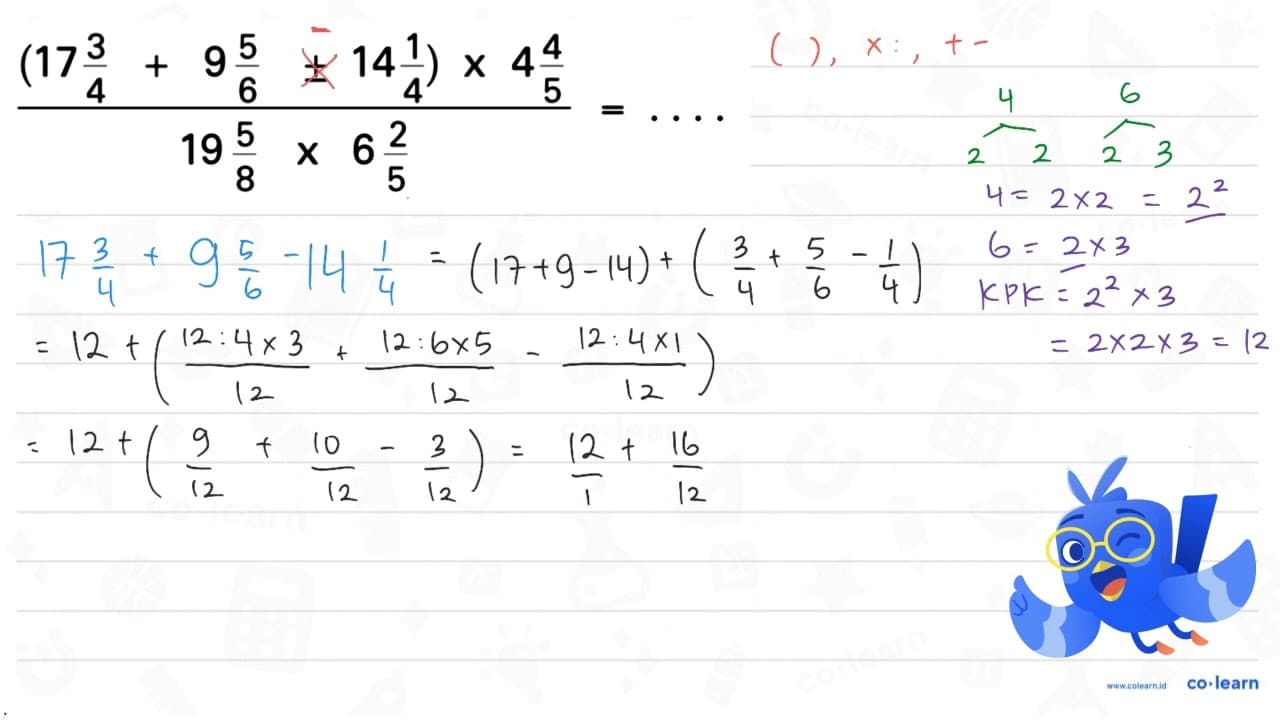 (17 3/4 + 9 5/6 ± 14 1/4) x 4 4/5
19 5/8 x 6 2/5
= ....
−
( ), x :, + -
4 6
2 2 2 3
4 = 2 x 2 = 2²
6 = 2 x 3
KPK = 2² x 3
= 2 x 2 x 3 = 12
17 3/4 + 9 5/6 - 14 1/4 = (17 + 9 - 14) + (3/4 + 5/6 - 1/4)
= 12 + (12 : 4 x 3/12 + 12 : 6 x 5/12 - 12 : 4 x 1/12)
= 12 + (9/12 + 10/12 - 3/12) = 12/1 + 16/12
www.colearn.id co·learn